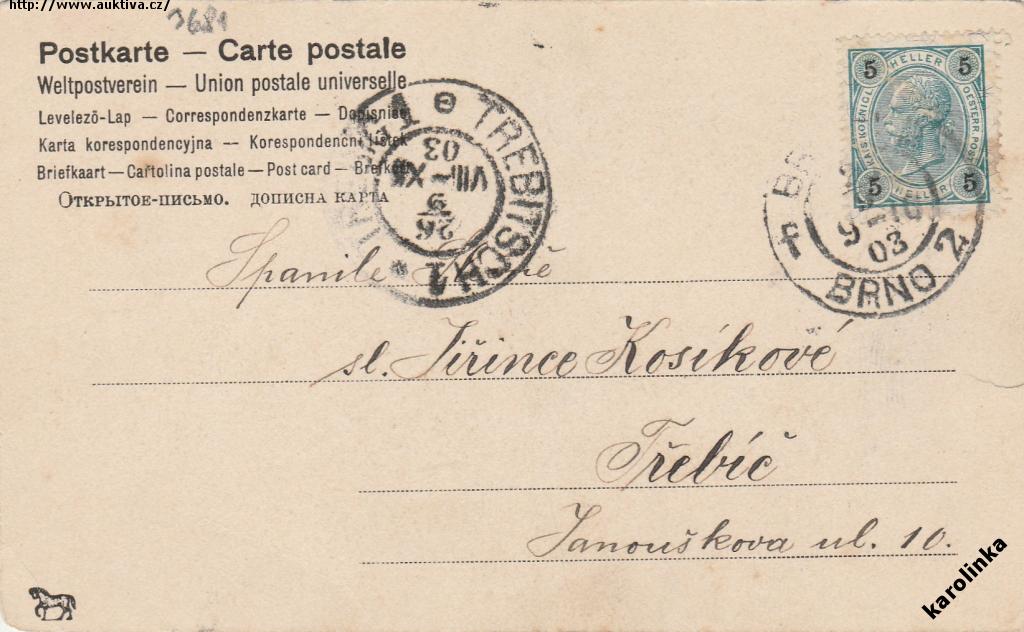 http://www.auktiva.cz/
3681
Postkarte — Carte postale
Weltpostverein — Union postale universelle
Levelező-Lap — Correspondenzkarte — Dopisnice
Karta korespondencyjna — Korespondenční lístek
Briefkaart — Cartolina postale — Post card — Brefkort
Открытое-письмо. дописна карта
5 HELLER 5
KAIS. KOENIGL. OESTERR. POST
5 HELLER 5
TREBITSCH 1
26
9
VIII–XII
03
BRNO 2
f
03
Spanilé
sl. Jiřince Kosíkové
Třebíč
Janouškova ul. 10.
karolinka